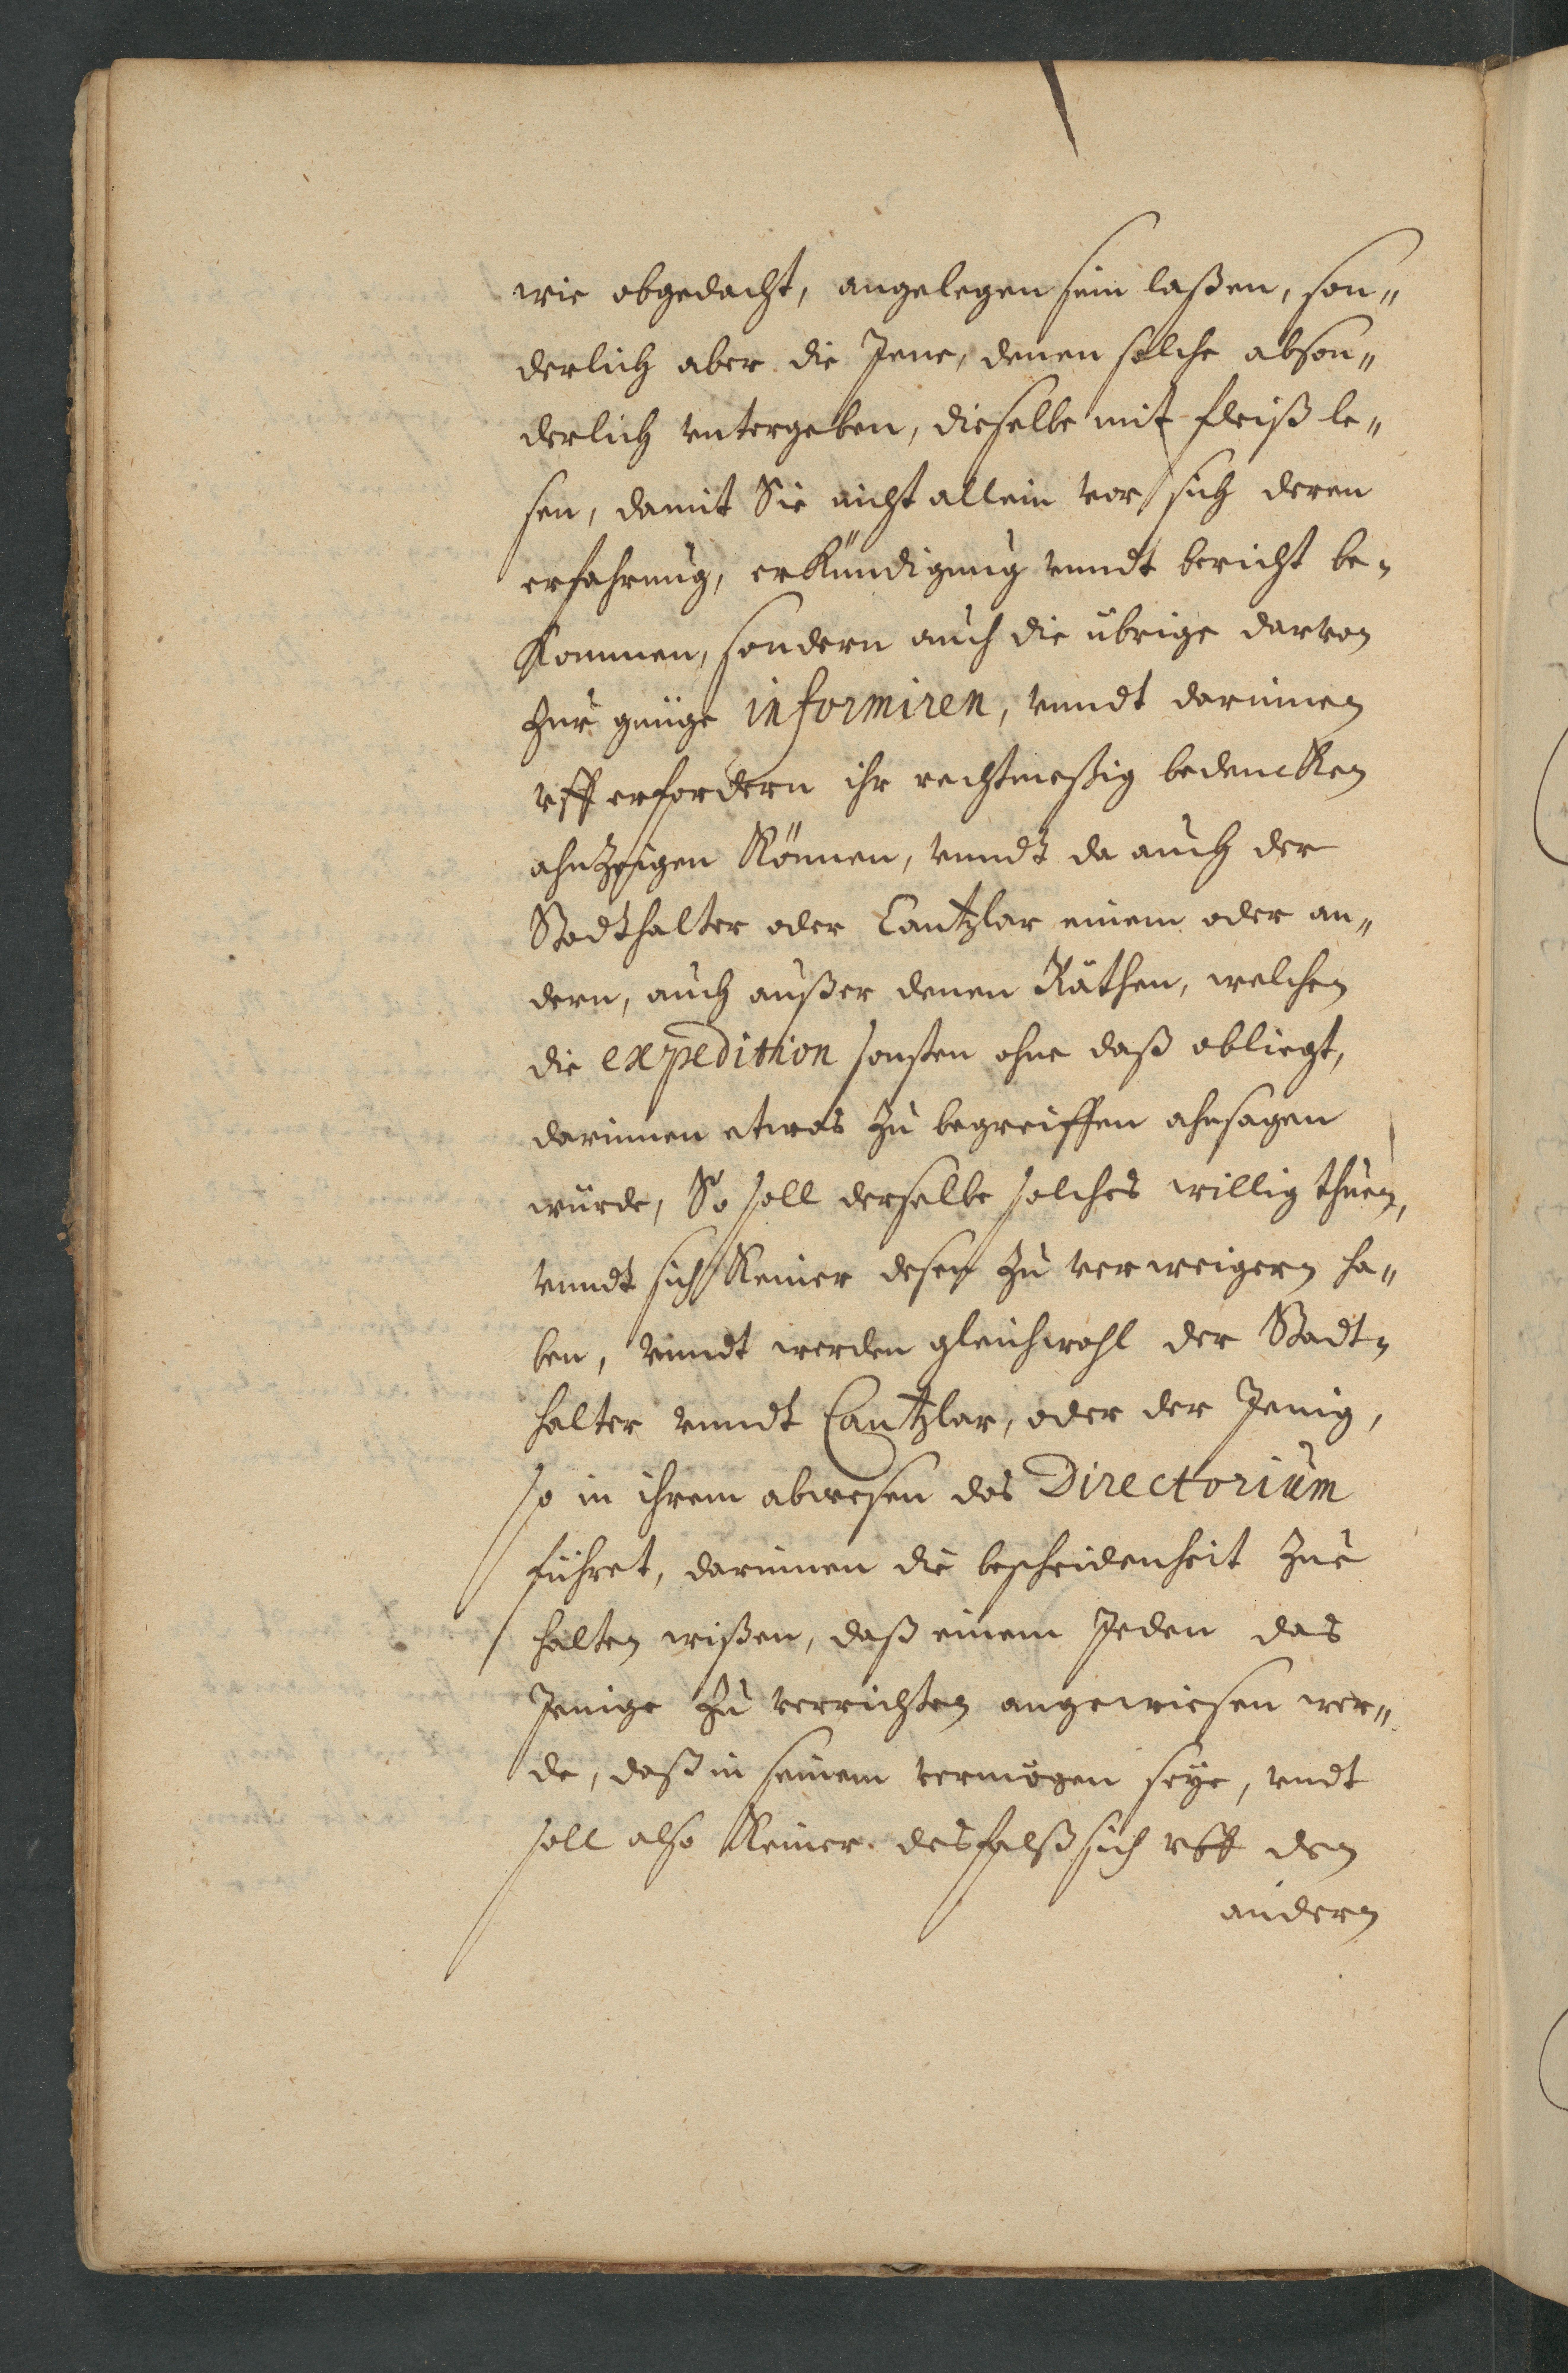 wie obgedacht, angelegen sein laßen, son„
derlich aber die Jene, denen solche abson„
derlich vntergeben, dieselbe mit fleiß le„
sen, damit Sie nicht allein vor sich deren
erfahrung, erkündigung vnndt bericht be„
kommen, sondern auch die übrige darvon
zur gnüge informiren, vnndt darinnen
vff erfordern ihr rechtmeßig bedencken
ahnzeigen können, vnndt da auch der
Stadthalter oder Cantzlar einem oder an„
dern, auch außer denen Räthen, welchen
die expedition sonsten ohne daß obliegt,
darinnen etwas zu begreiffen ahnsagen
würde, So soll derselbe solches willig thuen,
vnndt sich keiner deßen zu verweigern ha„
ben, vnndt werden gleichwohl der Stadt„
halter vnndt Cantzlar, oder der Jenig,
so in ihrem abwesen das Directorium
führet, darinnen die bescheidenheit zue
halten wißen, daß einem Jeden das
Jenige zu verrichten angewiesen wer„
de, daß in seinem vermögen seye, vndt
soll also keiner desfalß sich vff den
andern